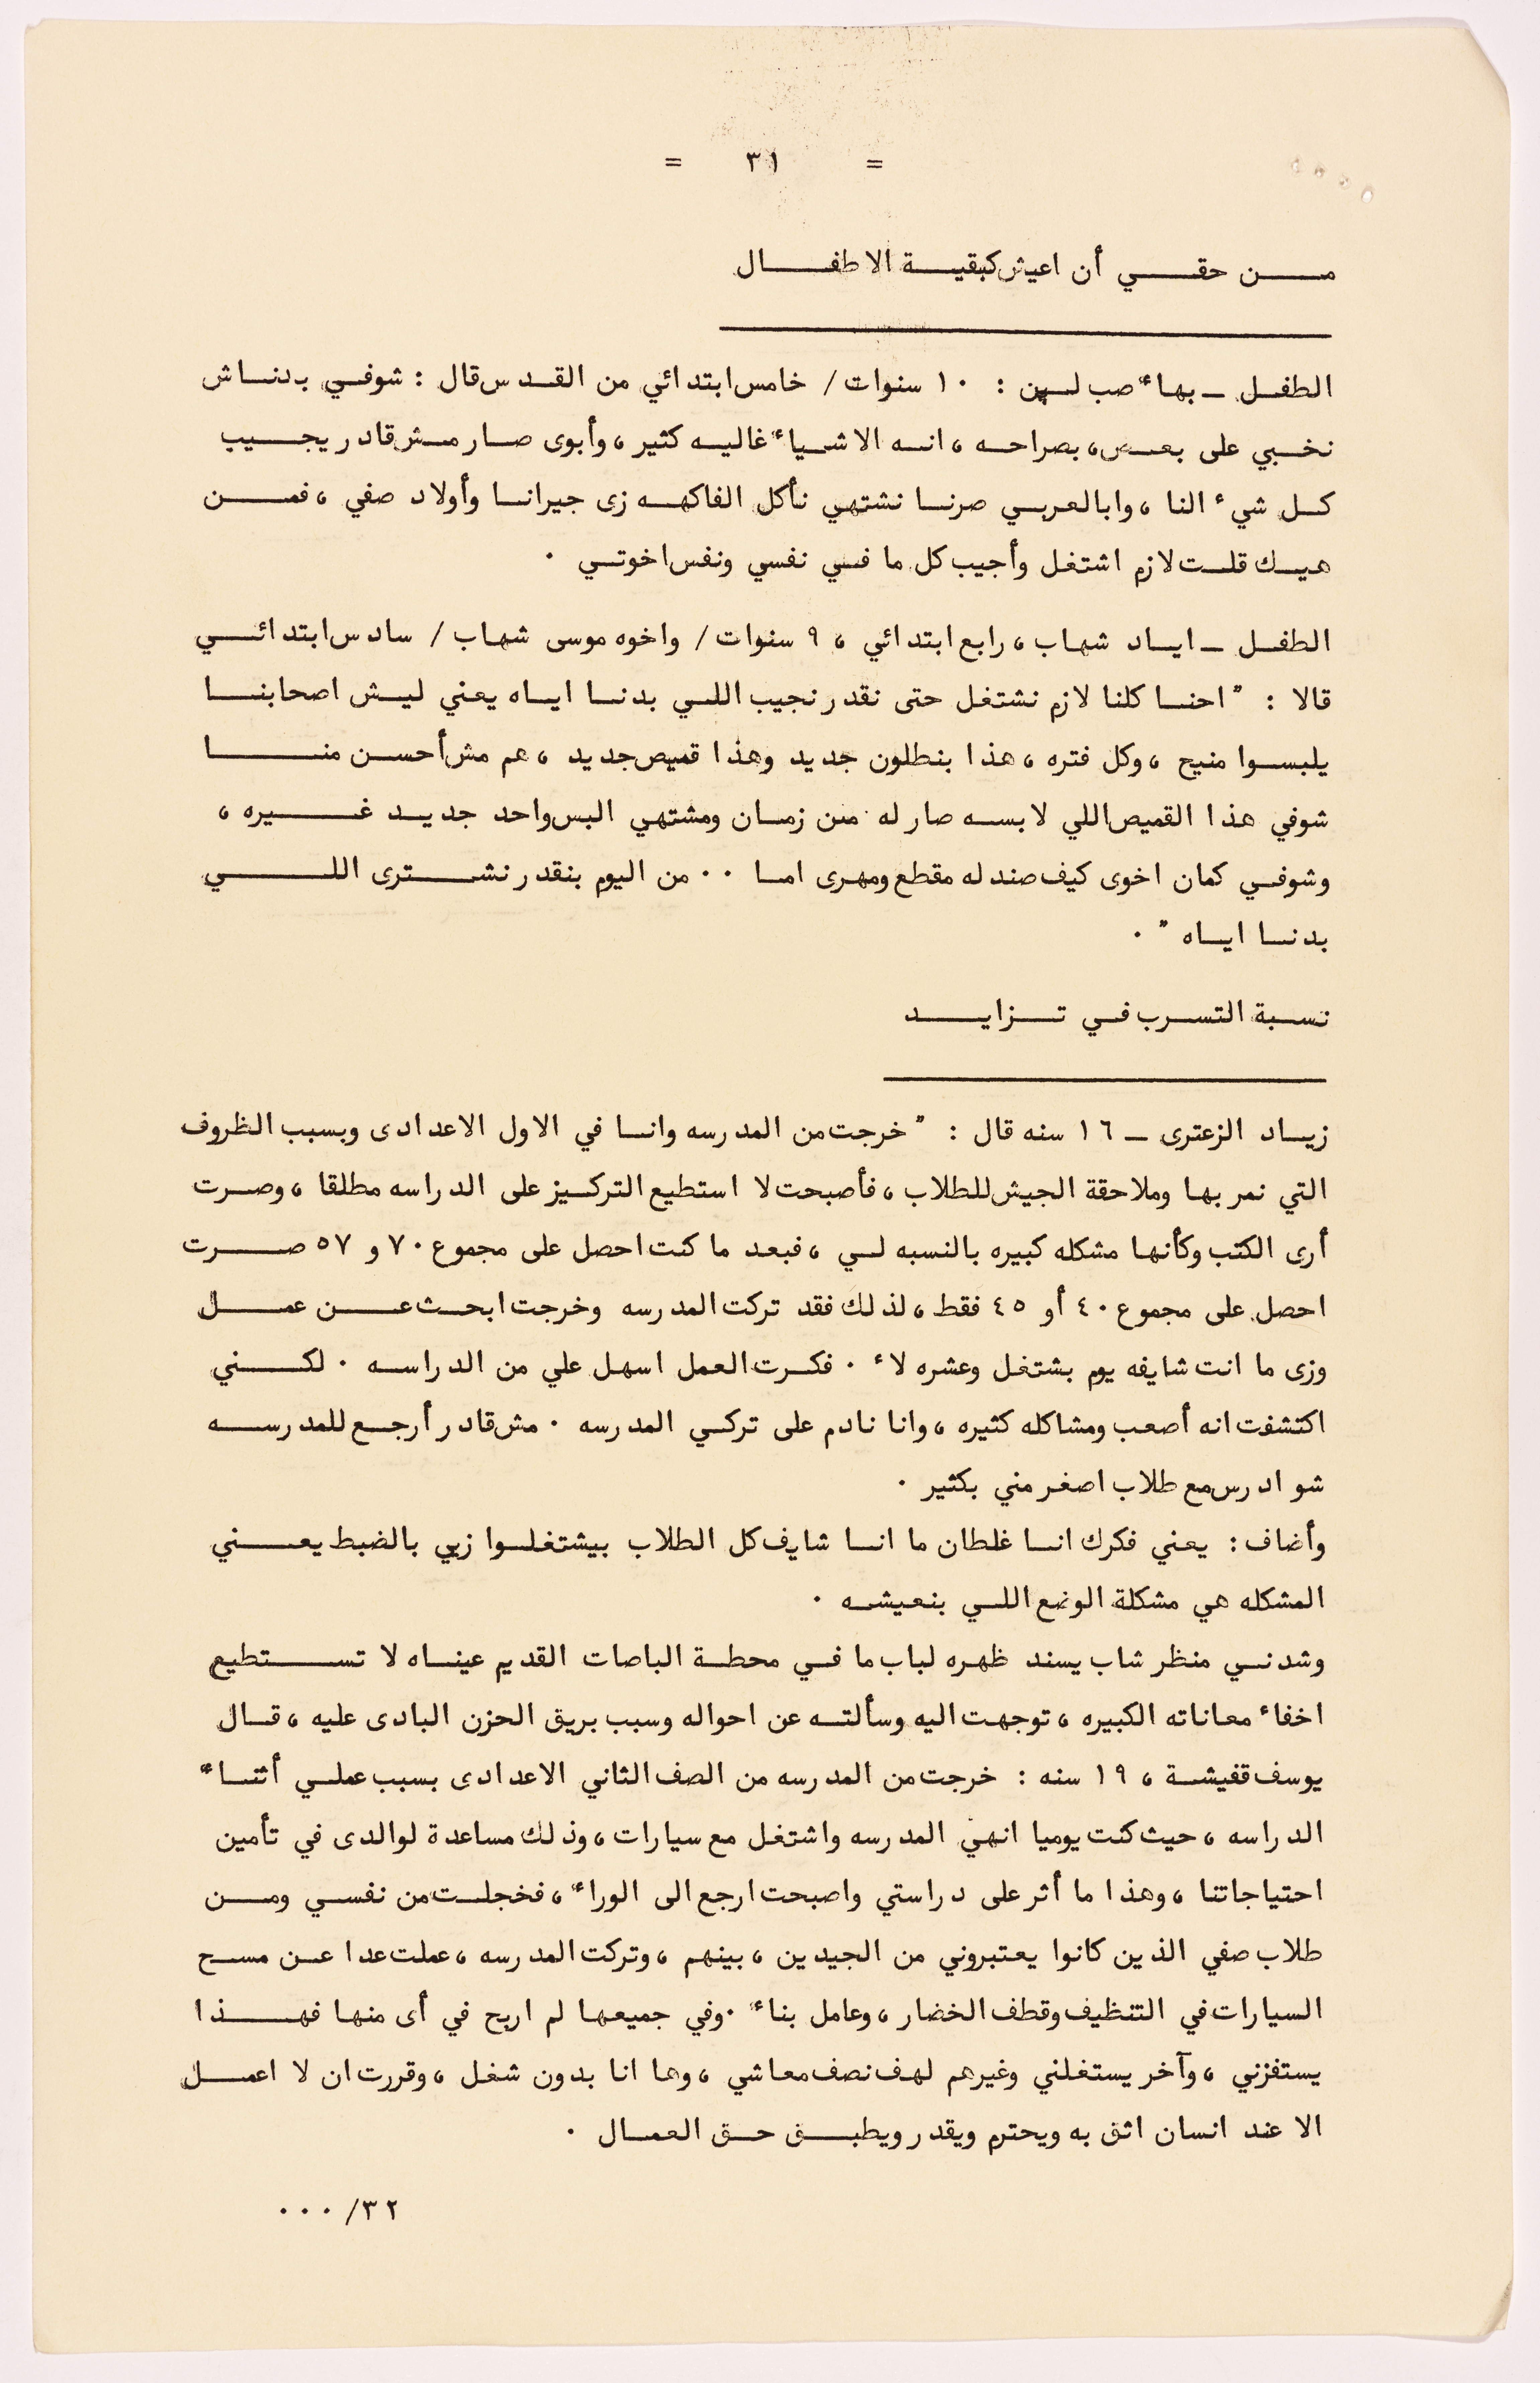 = ٣١ =
مـــن حقـــي أن اعيش كبقيـــة الاطفـــال
الطفــل ــ بهاء صب لبن : ١٠ سنوات / خامس ابتدائي من القدس قال : شوفــي بدنــاش
نخــبي على بعــض، بصراحــه ، انــه الاشــياء غاليــه كثير ، وأبوى صــار مــش قادر يجــيب
كــل شيء النا ، وابالعربــي صرنــا نشتهي نأكل الفاكهــه زى جيرانــا وأولاد صفي ، فمــن
هيــك قلــت لازم اشتغل وأجيب كل ما فــي نفسي ونفس اخوتــي .
الطفــل ــ ايــاد شهاب ، رابع ابتدائي ، ٩ سنوات / واخوه موسى شهاب / سادس ابتدائــي
قالا : " احنــا كلنا لازم نشتغل حتى نقدر نجيب اللــي بدنــا ايــاه يعني ليــش اصحابنــا
يلبســوا منيح ، وكل فتره ، هذا بنطلون جديد وهذا قميص جديد ، هم مش أحســن منــا
شوفي هذا القميص اللي لابســه صار له من زمــان ومشتهي البس واحد جديــد غــيره ،
وشوفــي كمان اخوى كيف صندله مقطع ومهرى امــا .. من اليوم بنقدر نشــترى اللــي
بدنــا ايــاه " .
نســبة التســرب فــي تــزايــد
زيــاد الزعترى ــ ١٦ سنه قال : " خرجت من المدرسه وانــا في الاول الاعدادى وبسبب الظروف
التي نمر بهــا وملاحقة الجيش للطلاب ، فأصبحت لا استطيع التركــيز على الدراسه مطلقا ، وصــرت
أرى الكتب وكأنهــا مشكله كبيره بالنسبه لــي ، فبعد ما كنت احصل على مجموع ٧٠ و ٥٧ صــرت
احصل على مجموع ٤٠ أو ٤٥ فقط ، لذلك فقد تركت المدرسه وخرجت ابحــث عــن عمــل
وزى ما انت شايفه يوم بشتغل وعشره لاء . فكــرت العمل اسهل علي من الدراســه . لكــني
اكتشفت انه أصعب ومشاكله كثيره ، وانا نادم على تركــي المدرسه . مش قادر أرجــع للمدرســه
شو ادرس مع طلاب اصغر مني بكثير .
وأضاف : يعني فكرك انــا غلطان ما انــا شايف كل الطلاب بيشتغلــوا زيي بالضبط يعــني
المشكله هي مشكلة الوضع اللــي بنعيشــه .
وشدنــي منظر شاب يسند ظهره لباب ما فــي محطــة الباصات القديم عينــاه لا تســتطيع
اخفاء معــاناته الكبيره ، توجهــت اليه وسألتــه عن احواله وسبب بريق الحزن البادى عليه ، قــال
يوسف قفيشــة ، ١٩ سنه : خرجت من المدرسه من الصف الثاني الاعدادى بسبب عملــي أثنــاء
الدراسه ، حيث كنت يوميا انهي المدرسه واشتغل مع سيارات ، وذلك مساعدة لوالدى في تأمين
احتياجاتنا ، وهذا ما أثر على دراستي واصبحت ارجع الى الوراء ، فخجلــت من نفســي ومــن
طلاب صفي الذين كانوا يعتبروني من الجيدين ، بينهم ، وتركت المدرسه ، عملت عدا عــن مســح
السيارات في التنظيف وقطف الخضار ، وعامل بناء . وفي جميعهــا لم اربح في أى منهــا فهــذا
يستفزني ، وآخر يستغلني وغيرهم لهــف نصف معاشي ، وها انا بدون شغل ، وقررت ان لا اعمــل
الا عند انسان اثق به ويحترم ويقدر ويطبــق حــق العمــال .
٣٢/ ...